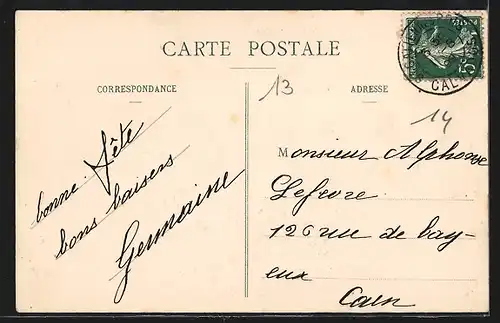 CARTE POSTALE
CORRESPONDANCE
ADRESSE
13
14
bonne fête
bons baisers
Germaine
Monsieur Alphonse
Lefevre
126 rue de bay-
eux
Caen
5c
CAL